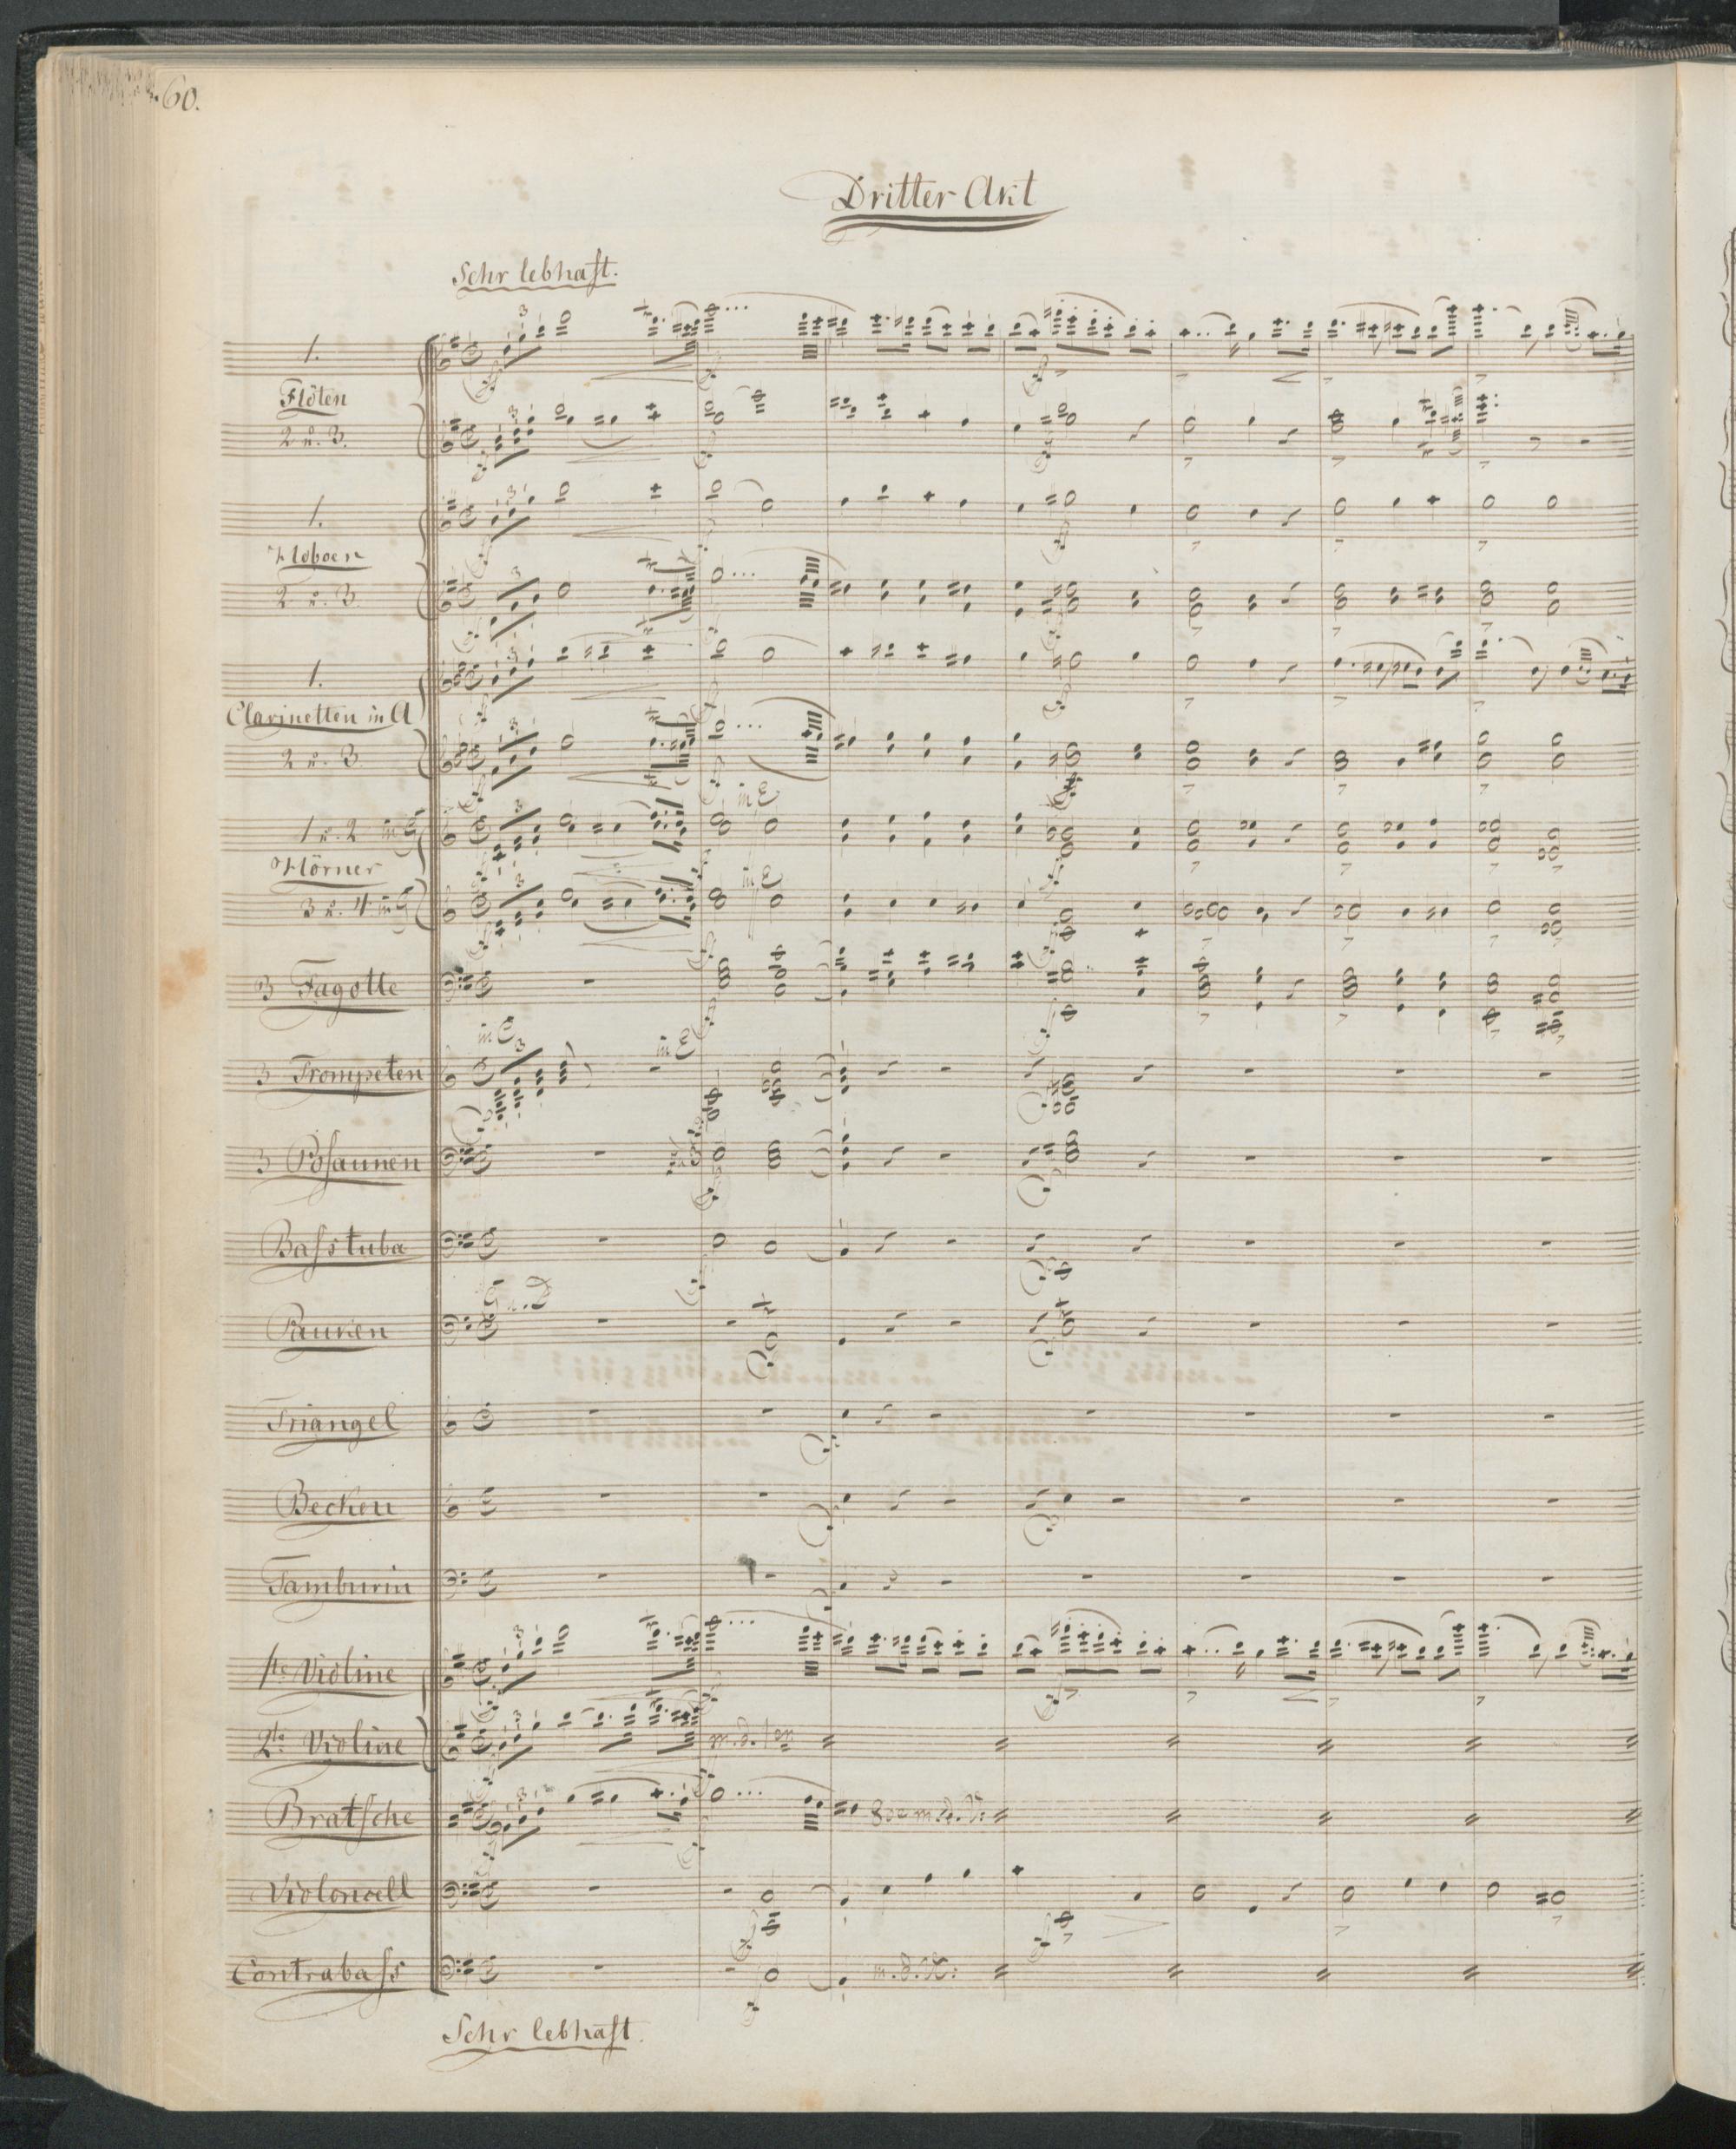 60.
Dritter Akt
Sehr lebhaft.
1.
Flöten
2 u. 3.
1.
Hoboen
2 u. 3
1.
Clarinetten in A
2 u. 3
in E
1 u. 2 in G
Hörner
in E
3 u. 4 in G
3 Fagotte
in C
in E
3 Trompeten
3 Posaunen
Basstuba
G u. D
Pauken
Triangel
Becken
Tamburin
1te Violine
2te Violine
m. d. 1en
Bratsche
8va m. d. V:
Violoncell
Contrabass
m. d.
Sehr lebhaft.